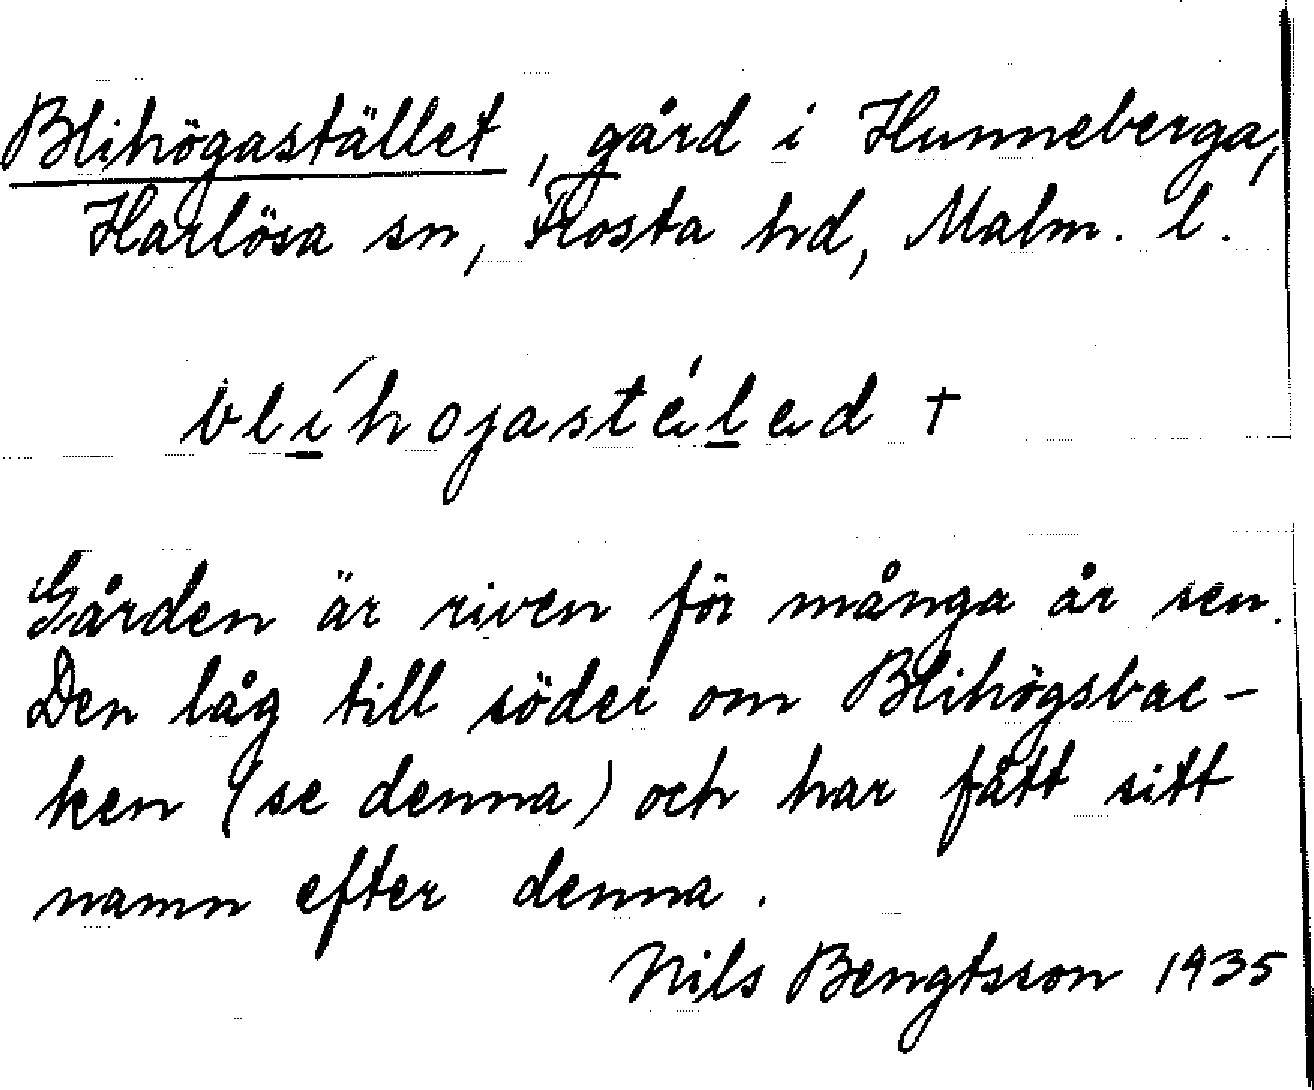 Blihögastället, gård i Hunneberga,
Harlösa sn, Frosta hd, Malm. l.
blíhojastéled +
Gården är riven för många år sen.
Den låg till söder om Blihögsbac-
ken (se denna) och har fått sitt
namn efter denna.
Nils Bengtsson 1935